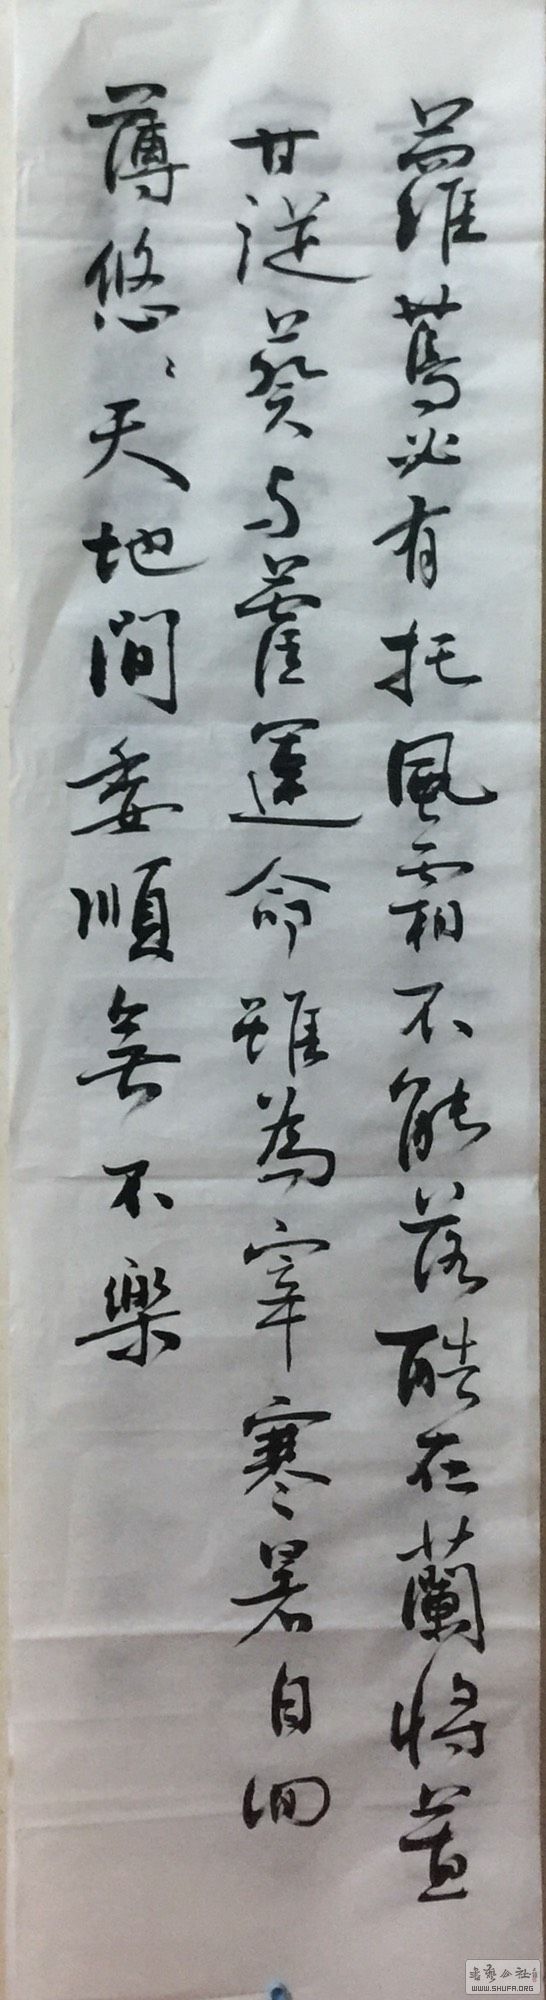 蘿蔦必有托風霜不能落酷在蘭將蕙
甘從葵与藿運命雖為宰寒暑自洄
薄悠〻天地間委順無不樂
书艺公社
WWW.SHUFA.ORG